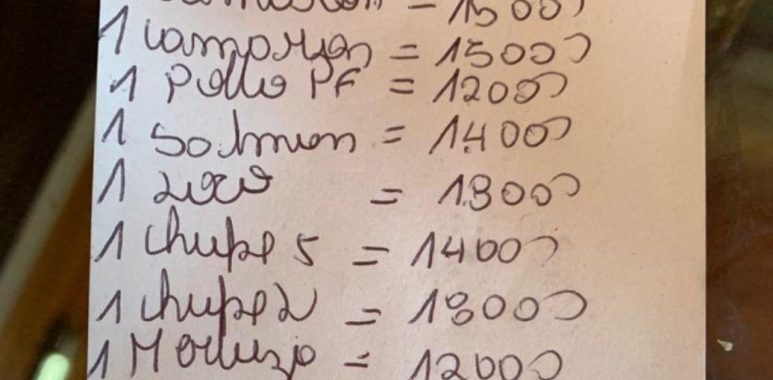 = 15000
1 Camaron = 15000
1 Pollo PF = 12000
1 Salmon = 14000
1 Loco = 18000
1 Chupe S = 14000
1 Chupe L = 18000
1 Merluza = 12000